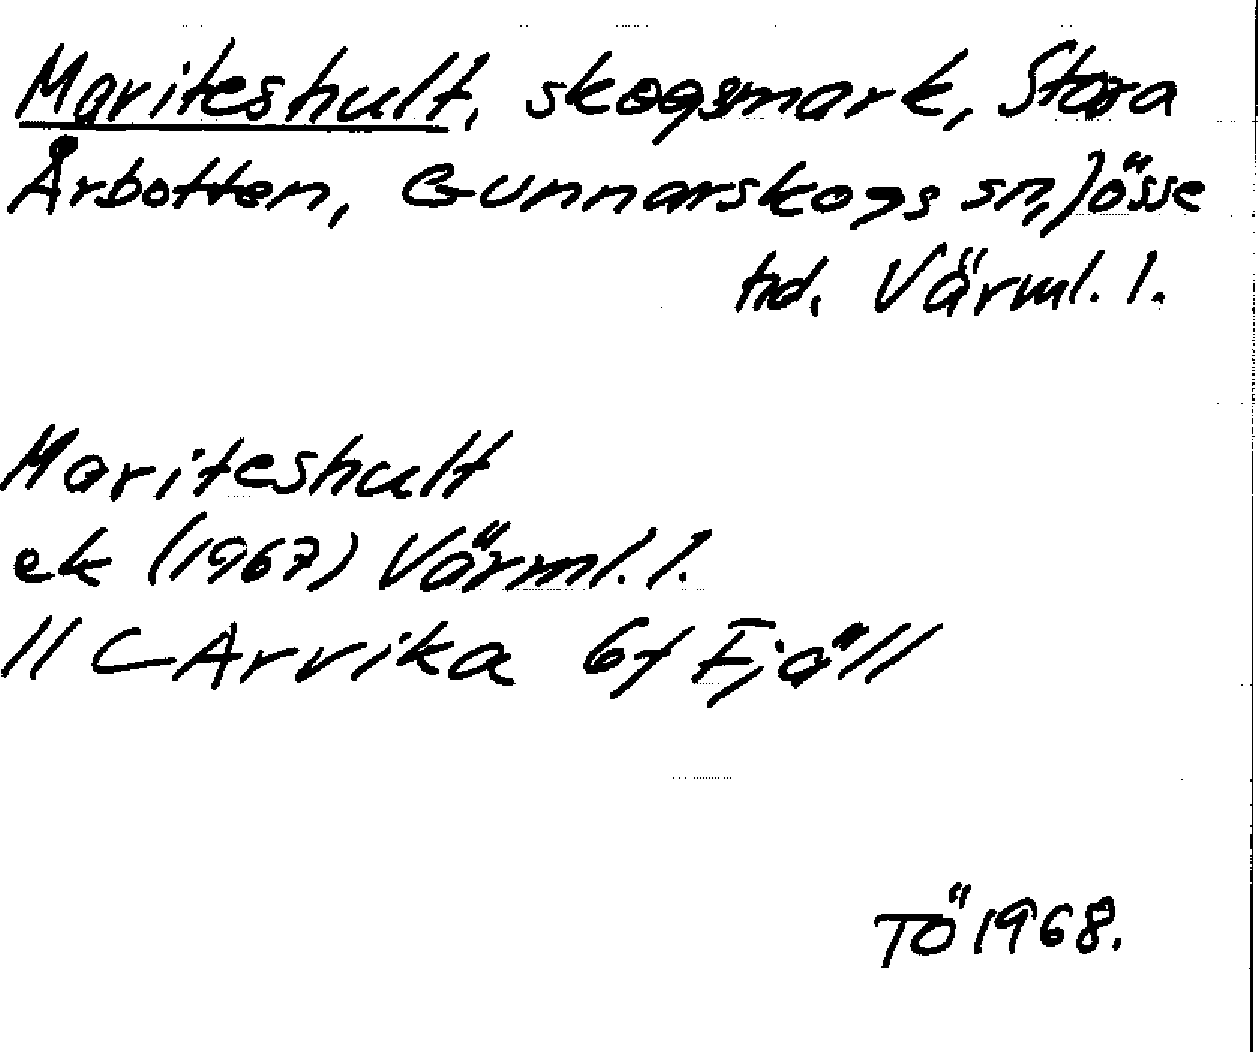 Mariteshult, skogsmark, Stora
Årbotten, Gunnarskogs sn, Jösse
hd. Värml. l.
Mariteshult
ek (1967) Värml. l.
11 C Arvika 6f Fjäll
TÖ 1968.